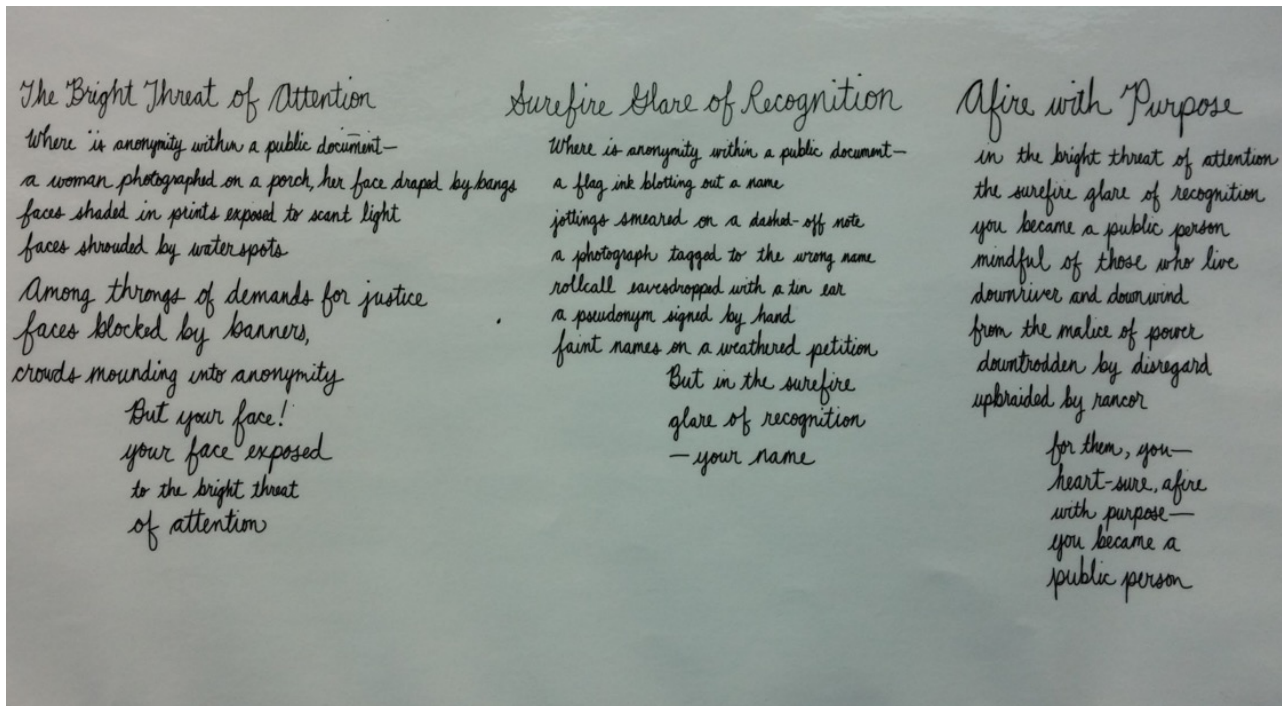 The Bright Threat of Attention
Where is anonymity within a public document—
a woman photographed on a porch, her face draped by bangs
faces shaded in prints exposed to scant light
faces shrouded by water spots
Among throngs of demands for justice
faces blocked by banners,
crowds mounding into anonymity
But your face!
your face exposed
to the bright threat
of attention
Surefire Glare of Recognition
Where is anonymity within a public document—
a flag ink blotting out a name
jottings smeared on a dashed-off note
a photograph tagged to the wrong name
rollcall eavesdropped with a tin ear
a pseudonym signed by hand
faint names on a weathered petition
But in the surefire
glare of recognition
—your name
Afire with Purpose
in the bright threat of attention
the surefire glare of recognition
you became a public person
mindful of those who live
downriver and downwind
from the malice of power
downtrodden by disregard
upbraided by rancor
for them, you—
heart-sure, afire
with purpose—
you became a
public person